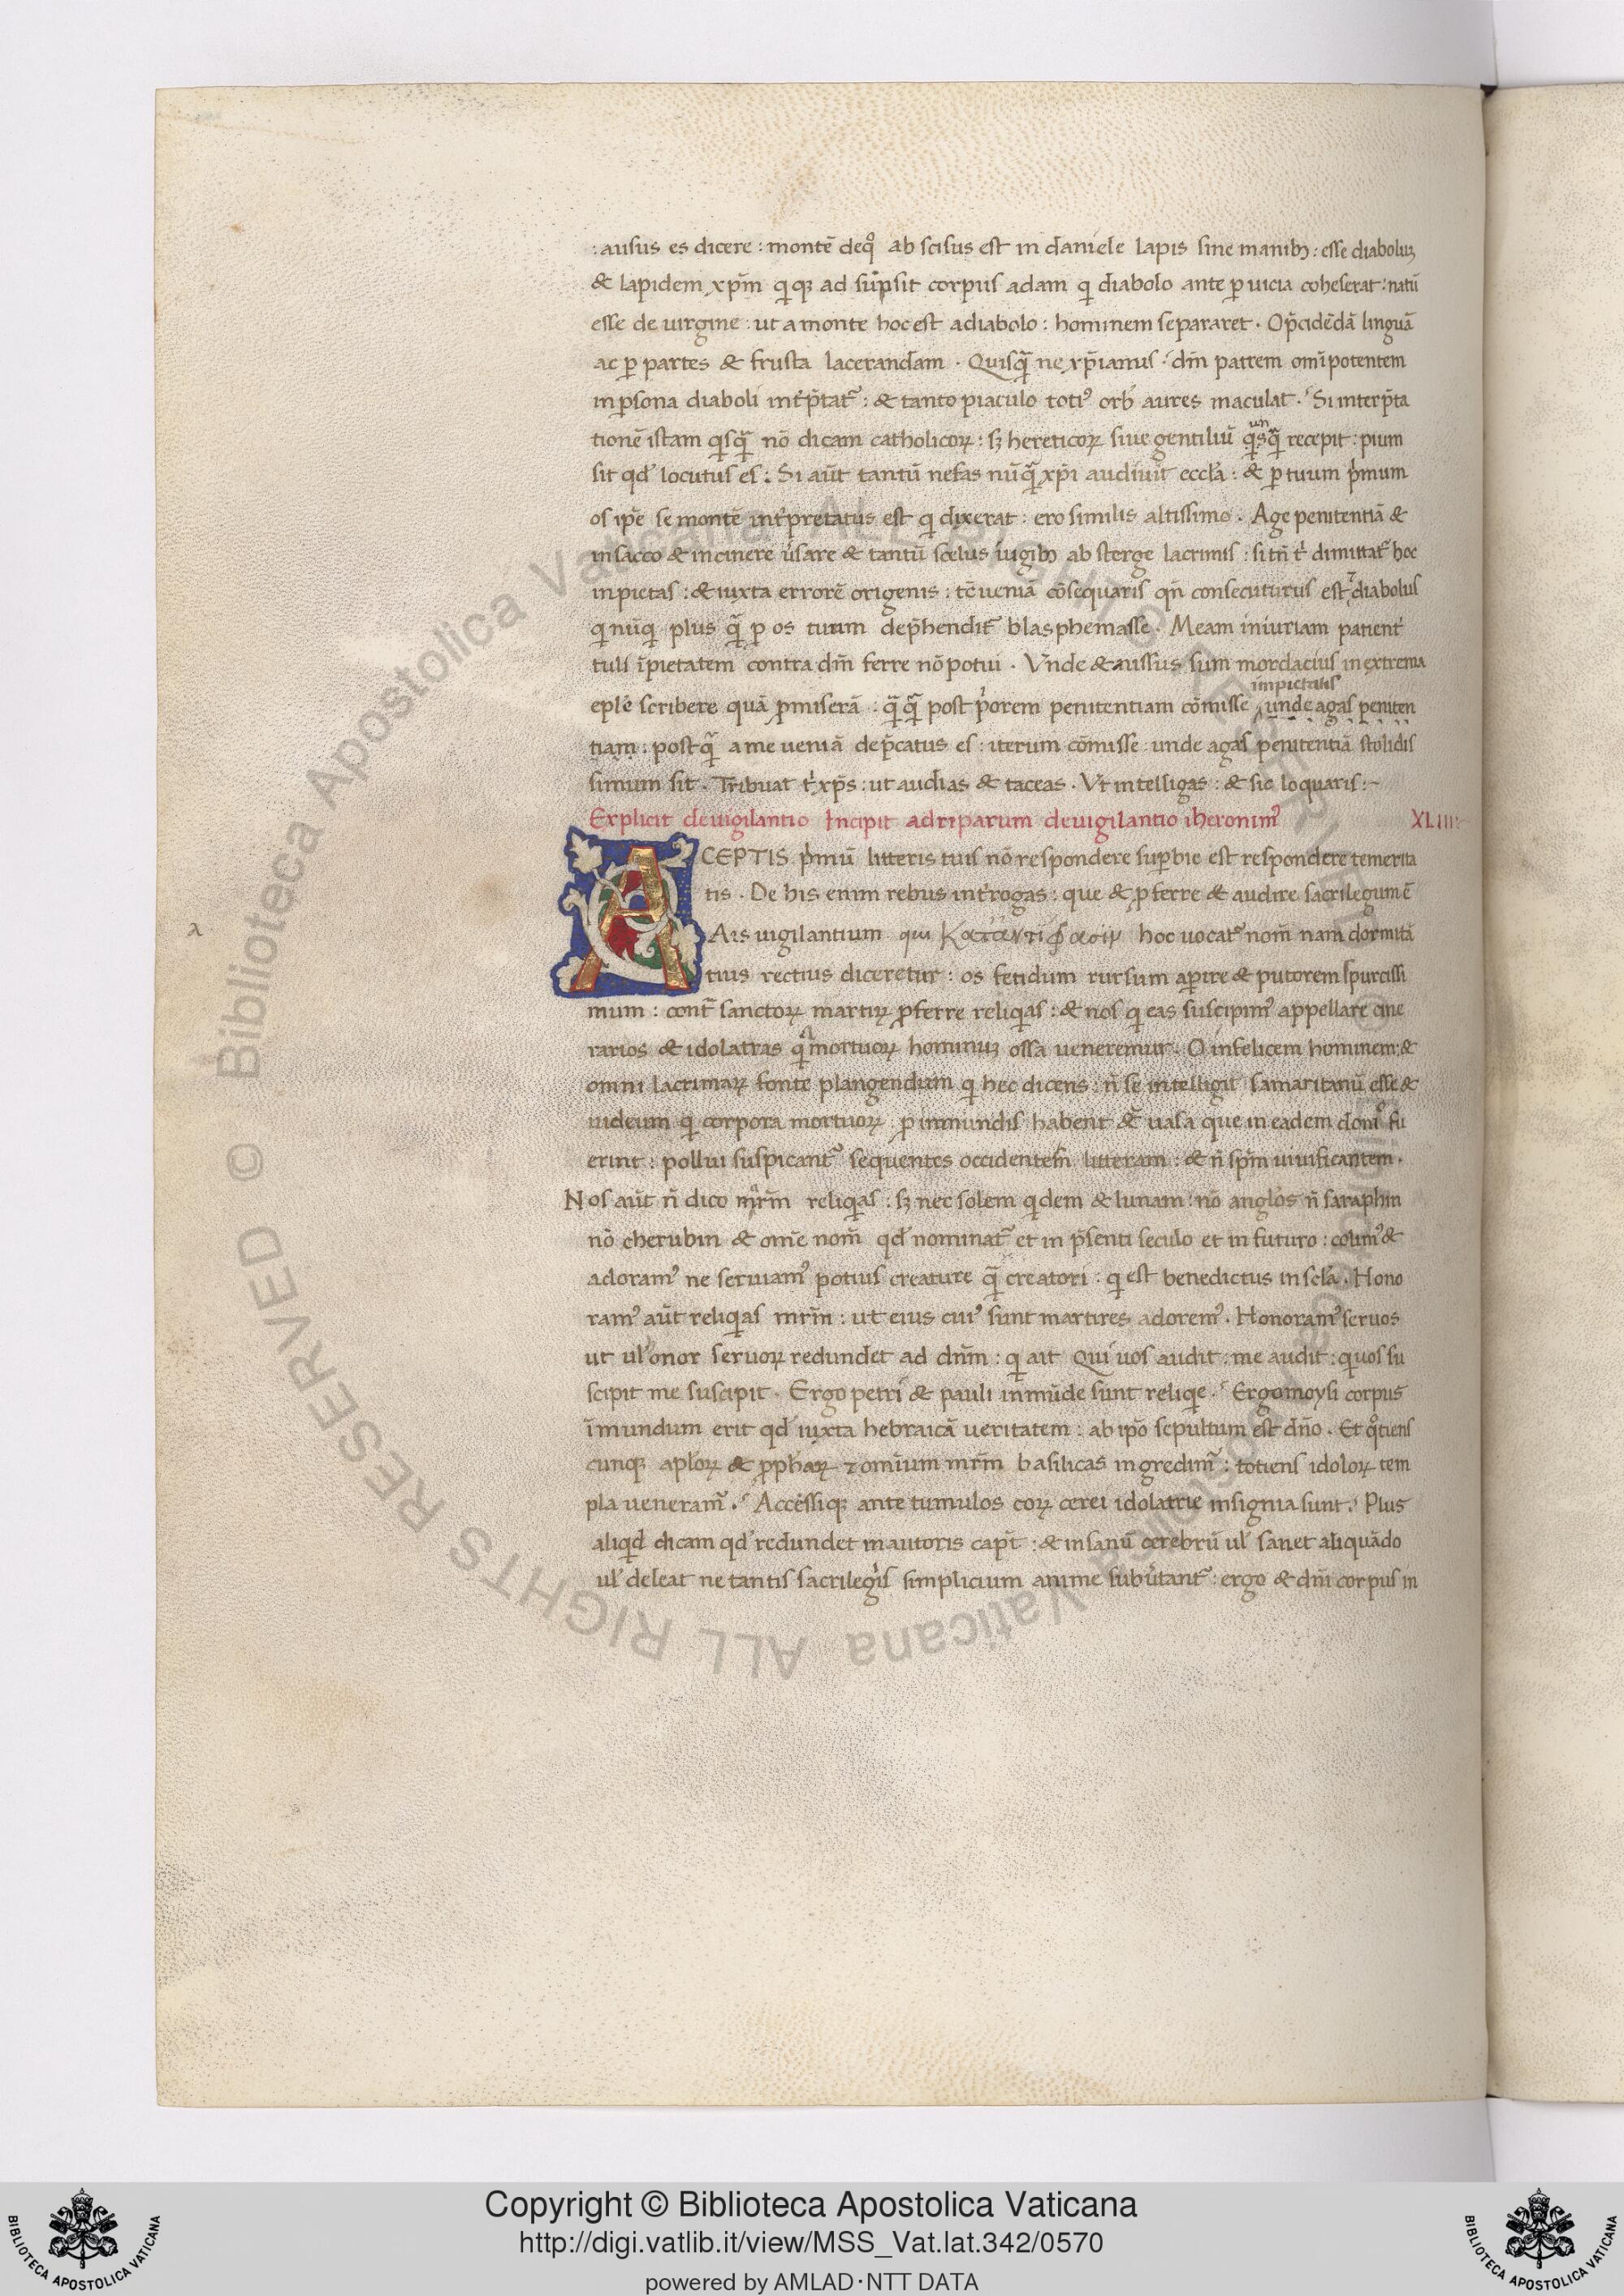 : ausus es dicere : montē deqͦ ab scisus est in daniele lapis sine manibꝫ : esse diaboluꝫ
& lapidem xp̄m qiqꝫ ad sūpsit corpus adam qi diabolo ante ꝑ uicia coheserat : natū
esse de uirgine : ut a monte hoc est a diabolo : hominem separaret . O p̄cidēdā linguā
ac ꝑ partes & frusta lacerandam . Quisqᷓ ne xp̄ianus : dm̄ patrem om̄ipotentem
in ꝑsona diaboli int̓p̄tatᷓ : & tanto piaculo totiꝰ orb̓ aures maculat . Si interp̄ta
tionē istam qisqᷓ nō dicam catholicoꝝ : sꝫ hereticoꝝ siue gentiliū qisqᷓ recepit : pium
sit qd̓ locutus es : Si aūt tantū nefas nūqᷓ xp̄i audiuit eccl̄a : & ꝑ tuum p̓mum
os ip̄e se montē int̓pretatus est qi dixerat : ero similis altissimo . Age penitentiā &
in sacco & in cinere u̓sare & tantū scelus iugibꝫ ab sterge lacrimis : si tn̄ t̓ dimittatᷓ hoc
inpietas : & iuxta errorē origenis : tc̄ ueniā cōsequaris qn̄ consecuturus est & diabolus
qi nūqi plus qᷓ ꝑ os tuum dep̄henditᷓ blasphemasse . Meam iniuriam patient̓
tuli īpietatem contra dm̄ ferre nō potui . Vnde & uissus sum mordacius in extrema
impietatis
epl̄e scribere quā ꝓmiserā : qᷓqᷓ post p̓orem penitentiam cōmisse unde agas peniten
tiam : postqᷓ a me ueniā dep̄catus es : iterum cōmisse : unde agas penitentiā stolidis
simum sit . Tribuat t̓ xp̄s : ut audias & taceas . Vt intelligas : & sic loquaris :~
Explicit de uigilantio Incipit ad riparum de uigilantio iheronimꝰ XLIIII
ACEPTIS p̓mū litteris tuis nō respondere suꝑbie est respondere temerita
tis . De his enim rebus int̓rogas : que & ꝓferre & audire sacrilegum ē
Ais uigilantium qui Κατ᾽ἀντίφασιν hoc uocatᷓ nom̄ nam dormitā
λ
tius rectius diceretur : os fetidum rursum aꝑire & putorem spurcissi
mum : contᷓ sanctoꝝ martiꝝ ꝓferre reliqias : & nos qi eas suscipimꝰ appellare cine
rarios & idolatras qi mortuoꝝ hominuꝫ ossa ueneremur . O infelicem hominem : &
omni lacrimaꝝ fonte plangendum qi hec dicens : n̄ se intelligit samaritanū esse &
iudeum qi corpora mortuoꝝ : ꝑ inmundis habent & uasa que in eadem domͦ fu
erint : pollui suspicantᷓ sequentes occidentem litteram : & n̄ sp̄m uiuificantem .
Nos aūt n̄ dico mr̄m reliqias : sꝫ nec solem qidem & lunam : nō anglōs n̄ saraphin
nō cherubin & om̄e nom̄ qd̓ nominatᷓ et in p̄senti seculo et in futuro : colimꝰ &
adoramꝰ ne seruiamꝰ potius creature qᷓ creatori : qi est benedictus in scl̄a . Hono
ramꝰ aūt reliqias mr̄m : ut eius cuiꝰ sunt martires adoremꝰ . Honoramꝰ seruos
ut ul̓ onor seruoꝝ redundet ad dn̄m : qi ait Qui uos audit : me audit : qi uos su
scipit me suscipit . Ergo petri & pauli inmūde sunt reliqie . Ergo moysi corpus
īmundum erit qd̓ iuxta hebraicā ueritatem : ab ip̄o sepultum est dn̄o . Et qͦtiens
cunqꝫ apl̓oꝝ & ꝓphaꝝ & om̄ium mr̄m basilicas ingredimᷓ : totiens idoloꝝ tem
pla ueneramᷓ . Accēssiqꝫ ante tumulos eoꝝ cerei idolatrie insignia sunt . Plus
aliqid dicam qd̓ redundet in autoris capt̄ : & insanū cerebrū ul̓ sanet aliquādo
ul̓ deleat ne tantis sacrilegi̓s simplicium anime subu̓tantᷓ : ergo & dn̄i corpus in
Copyright © Biblioteca Apostolica Vaticana
http://digi.vatlib.it/view/MSS_Vat.lat.342/0570
powered by AMLAD·NTT DATA
BIBLIOTECA APOSTOLICA VATICANA
BIBLIOTECA APOSTOLICA VATICANA
© Biblioteca Apostolica Vaticana ALL RIGHTS RESERVED
© Biblioteca Apostolica Vaticana ALL RIGHTS RESERVED